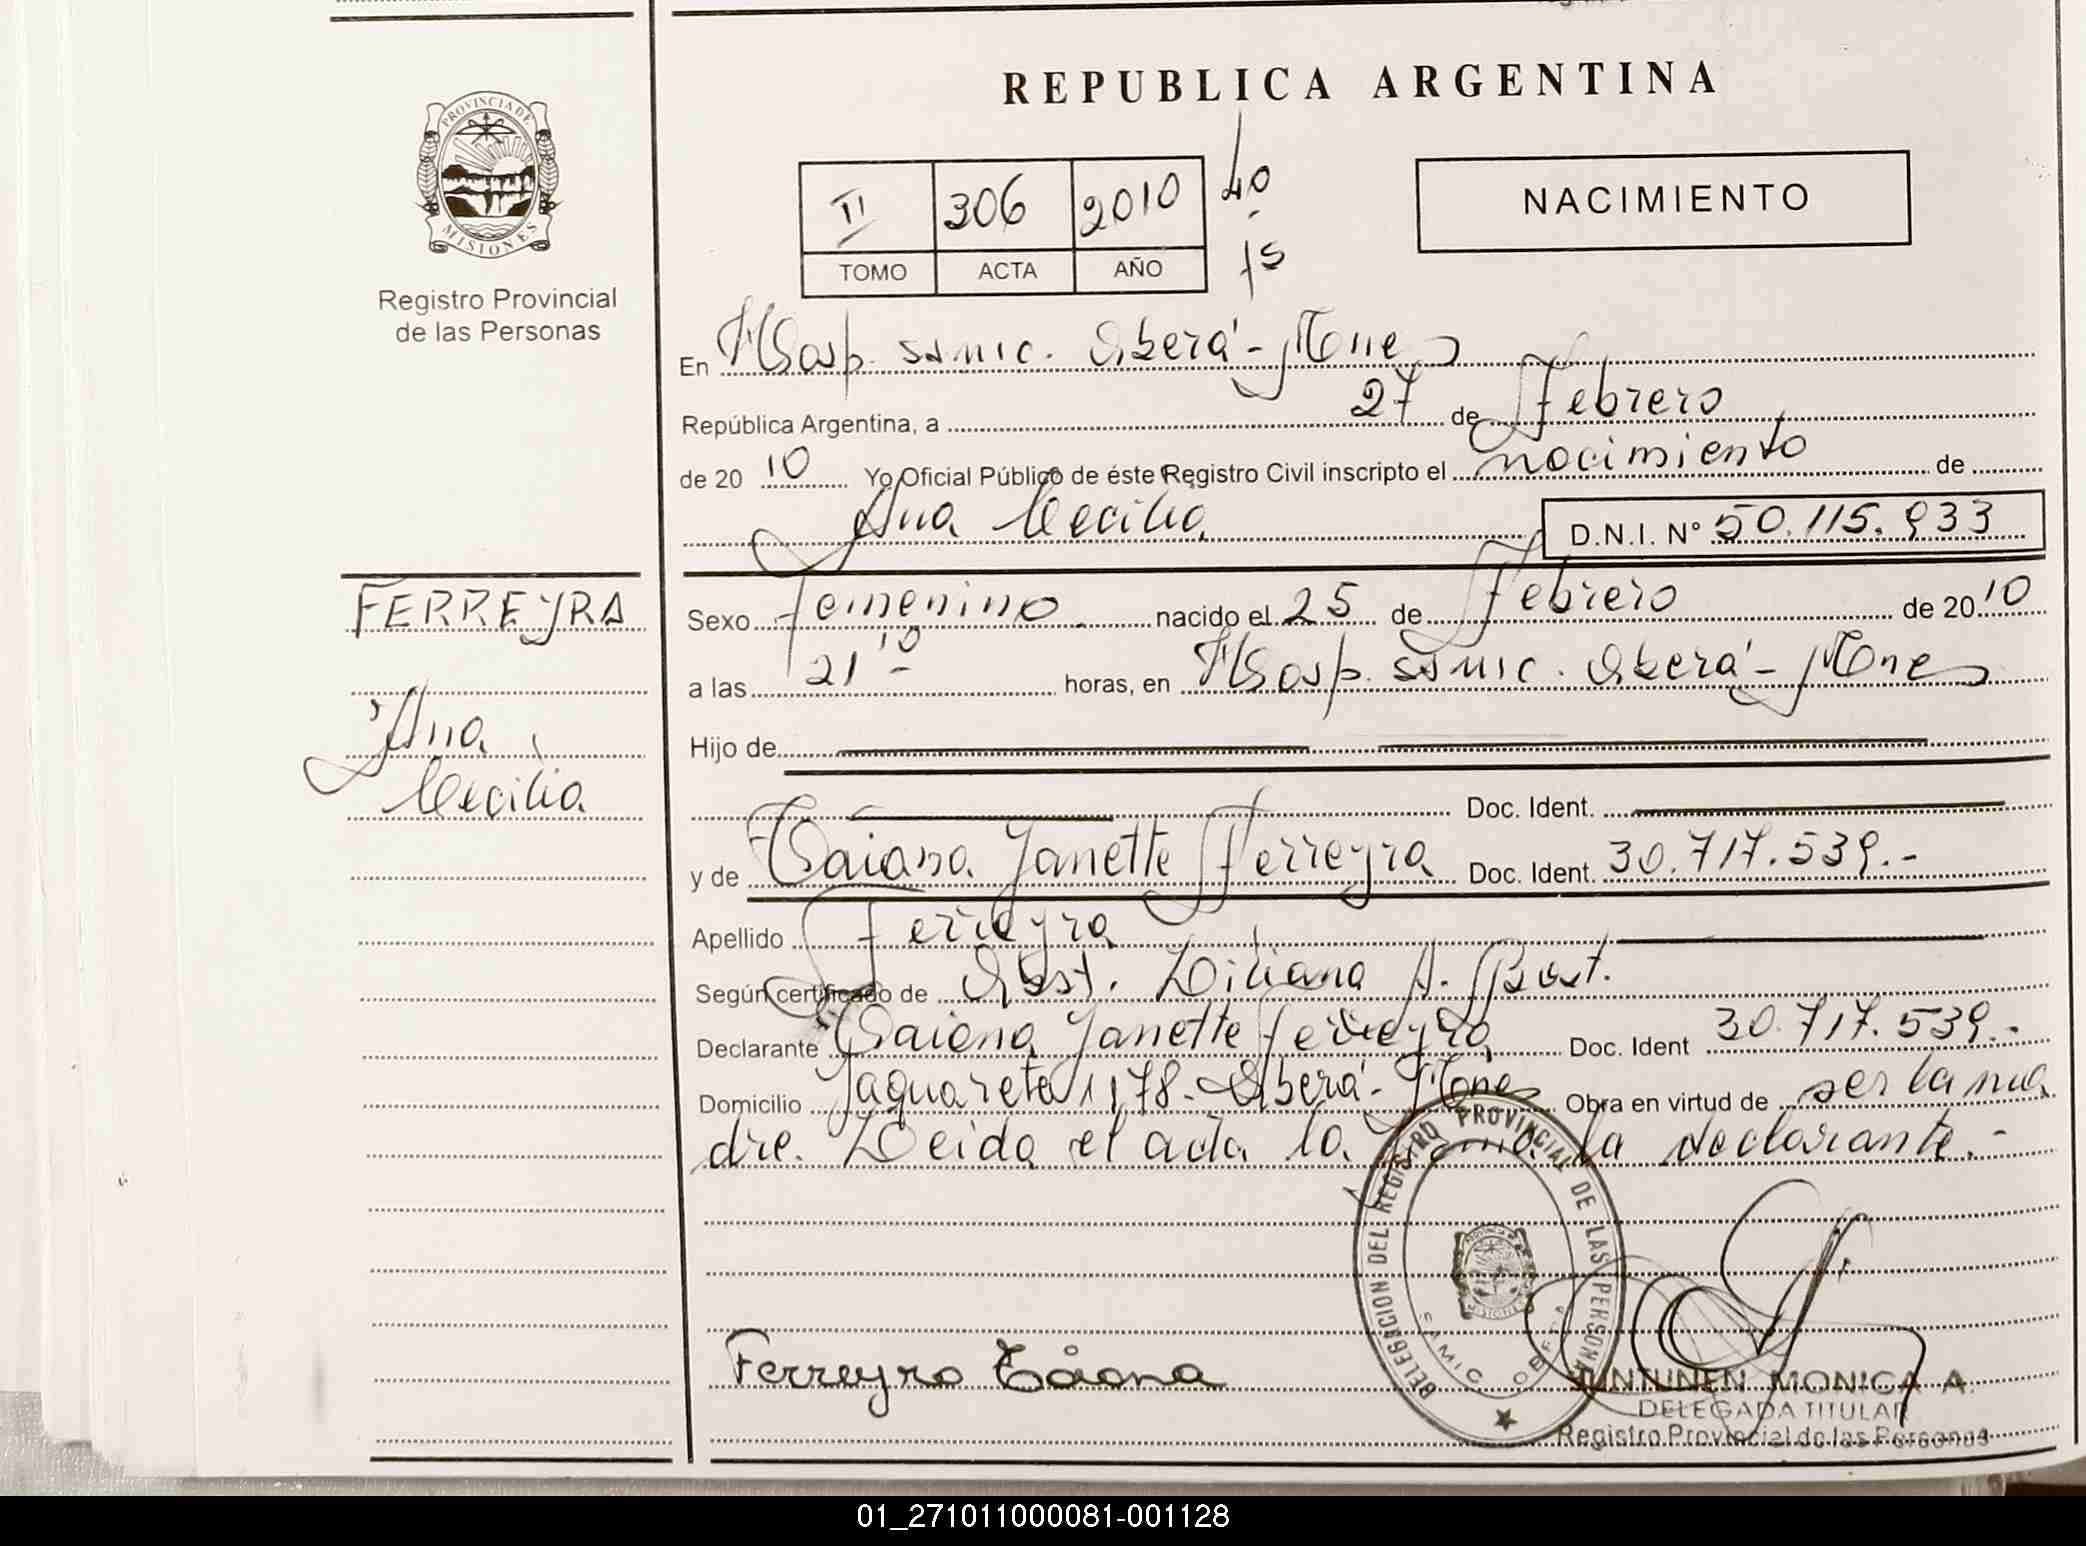 REPUBLICA ARGENTINA
PROVINCIA DE
MISIONES
Registro Provincial
de las Personas
II 306 2010
TOMO ACTA AÑO
40
15
NACIMIENTO
En Hosp. SAMIC. Oberá - Mnes
República Argentina, a 27 de Febrero
de 20 10 Yo Oficial Público de éste Registro Civil inscripto el nacimiento de
Ana Cecilia D.N.I. N° 50.115.933
FERREYRA
Ana
Cecilia
Sexo femenino nacido el 25 de Febrero de 20 10
a las 21 10 horas, en Hosp. SAMIC. Oberá - Mnes
Hijo de
Doc. Ident.
y de Taiana Janette Ferreyra Doc. Ident. 30.717.539.-
Apellido Ferreyra
Según certificado de Obst. Liliana A. Bost.
Declarante Taiana Janette Ferreyra Doc. Ident 30.717.539.-
Domicilio Yaguarete 1178 - Oberá - Mnes Obra en virtud de ser la ma
dre. Leida el acta la firma la declarante.-
DELEGACION DEL REGISTRO PROVINCIAL DE LAS PERSONAS
SAMIC OBERA
MISIONES
Ferreyra Taiana
JUNTUNEN MONICA A.
DELEGADA TITULAR
Registro Provincial de las Personas
01_271011000081-001128